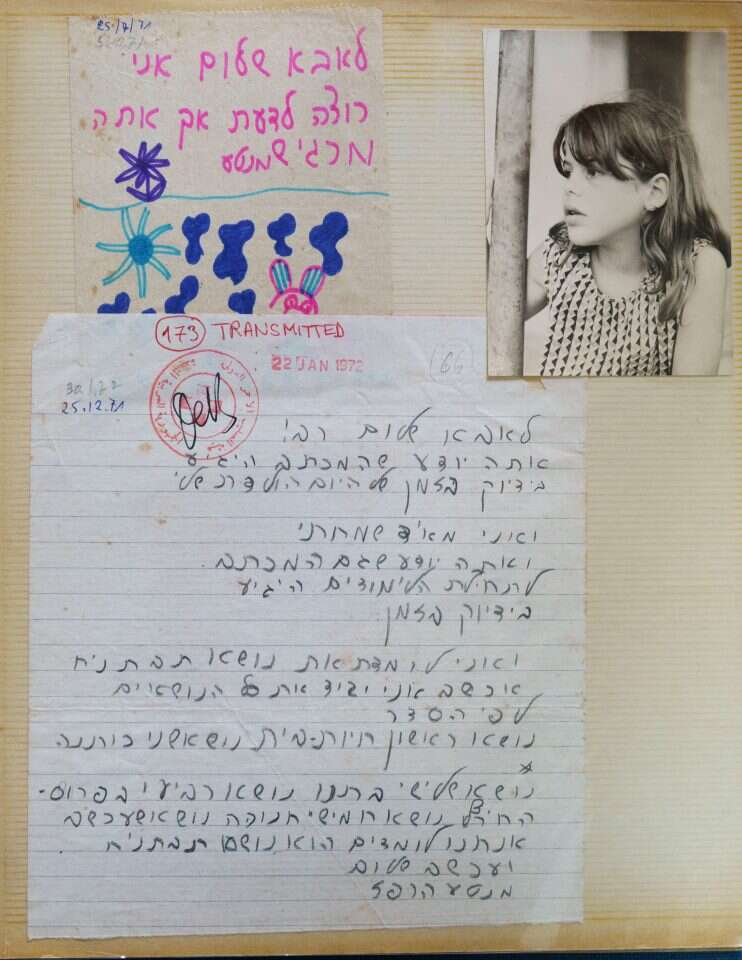 25/7/71
לאבא שלום אני
רוצה לדעת אך אתה
מרגיש מנטע
173 TRANSMITTED
22 JAN 1972
(66)
25.12.71
לאבא שלום רב!
אתה יודע שהמכתב היגיע
בידיוק בזמן של היום הולדת שלי
ואני מאד שמחתי
ואתה יודע שגם המכתב
לתחילת הלימודים היגיע
בידיוק בזמן.
ואני לומדת את נושא תבת נ"ח
אכשב אני יגיד את כל הנושאים
לפי הסדר
נושא ראשון חיות-בית נושא שני כותנה
נושא שלישי נושא רביעי בפרוס-
נושא חמישי חנוקה נושא שעכשב
אנחנו לומדים הוא נושא תבת נ"ח
ועכשב שלום
מנטע הרפז